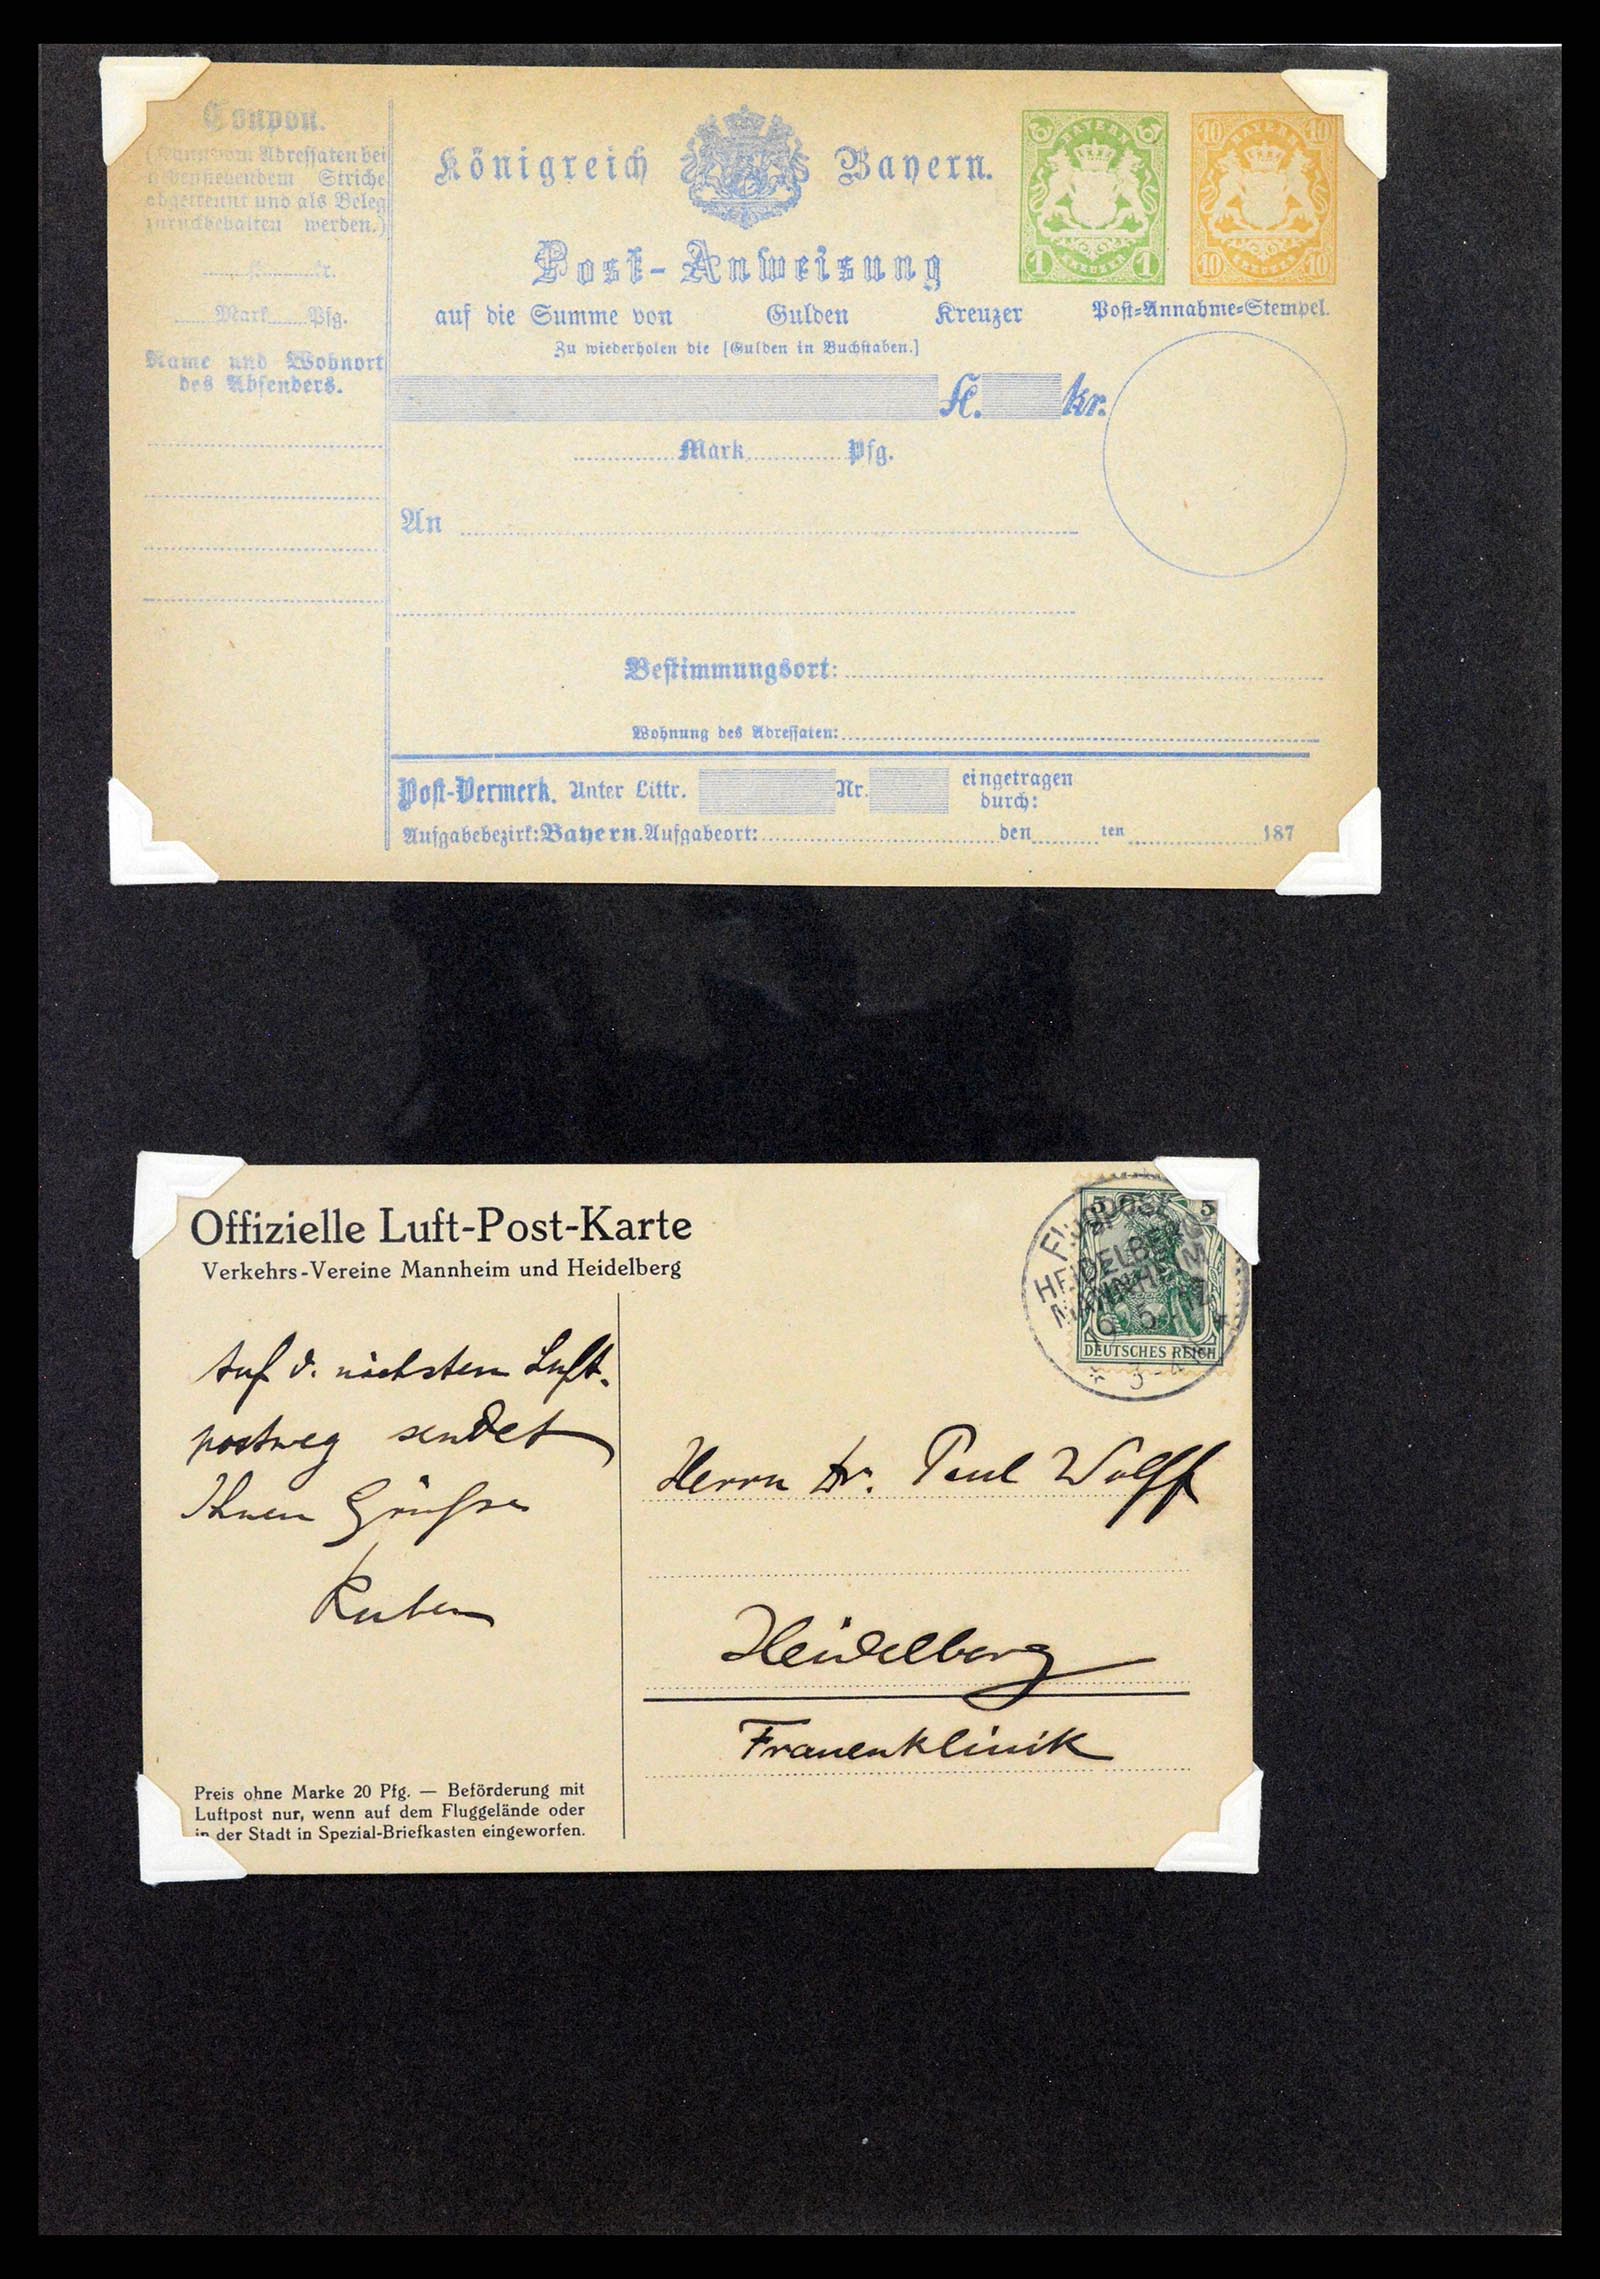 Coupon.
(Kann vom Adressaten bei
nebenstehendem Striche
abgetrennt und als Beleg
zurückbehalten werden.)
fl. kr.
Mark Pfg.
Name und Wohnort
des Absenders.
Königreich Bayern.
BAYERN
1 1
KREUZER
10 BAYERN 10
10 KREUZER 10
Post-Anweisung
auf die Summe von Gulden Kreuzer
Post-Annahme-Stempel.
Zu wiederholen die [Gulden in Buchstaben.]
fl. kr.
Mark Pfg.
An
Bestimmungsort:
Wohnung des Adressaten:
Post-Vermerk. Unter Littr. Nr. eingetragen
durch:
Aufgabebezirk: Bayern. Aufgabeort: den ten 187
Offizielle Luft-Post-Karte
Verkehrs-Vereine Mannheim und Heidelberg
Auf d. nächsten Luft-
postweg sendet
Ihnen Grüße
Preis ohne Marke 20 Pfg. — Beförderung mit
Luftpost nur, wenn auf dem Fluggelände oder
in der Stadt in Spezial-Briefkasten eingeworfen.
5 5
DEUTSCHES REICH
FLUGPOST
HEIDELBERG
MANNHEIM
Herrn Dr. Paul Wolff
Heidelberg
Frauenklinik